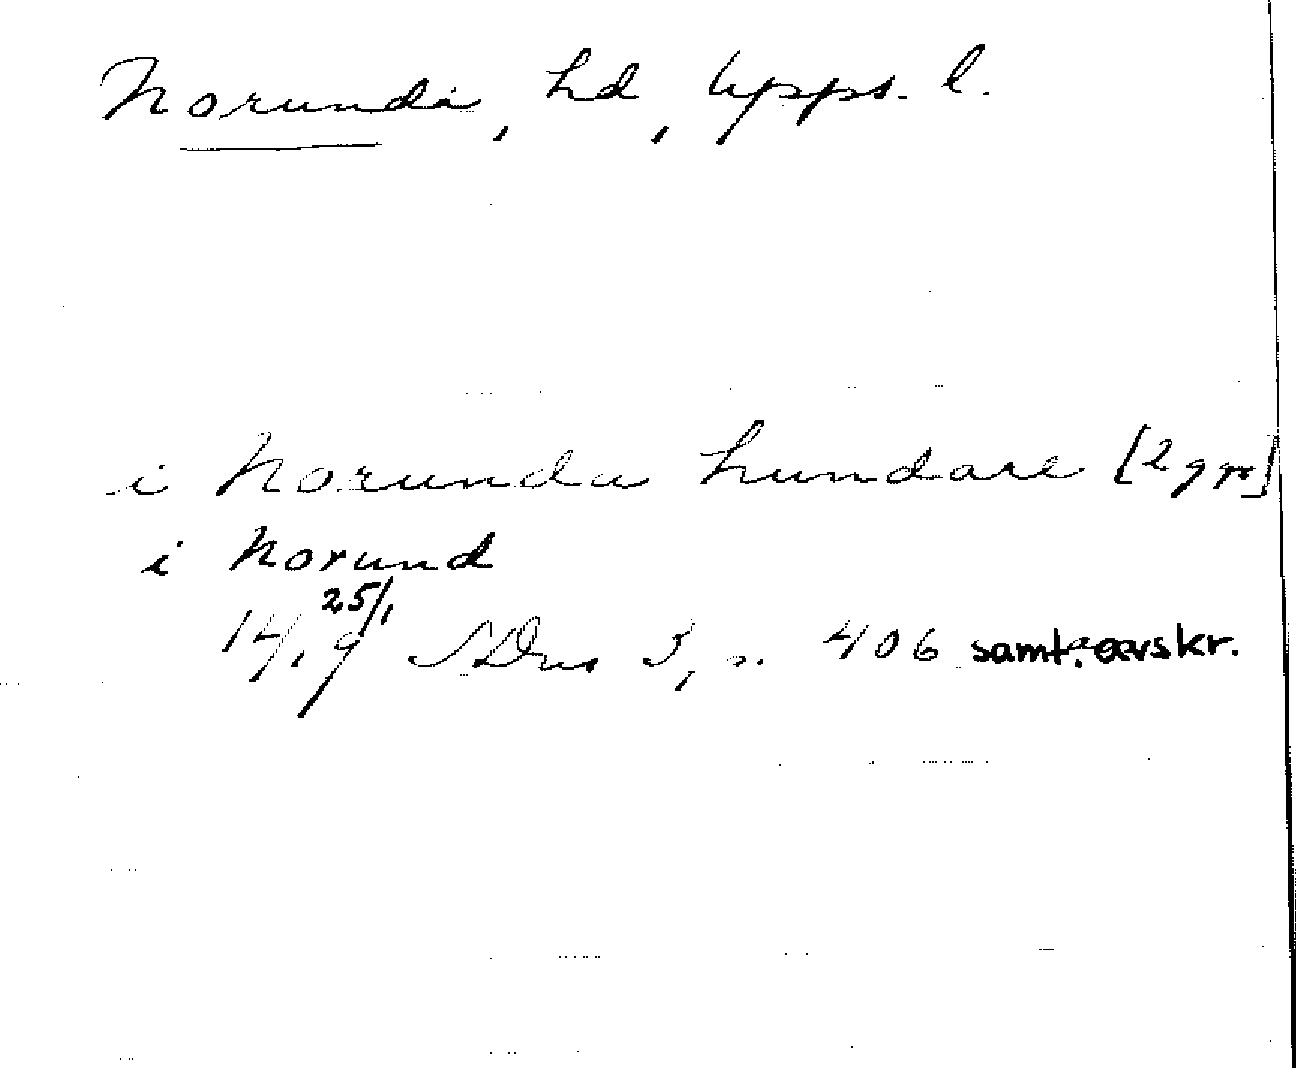 Norunda, hd, Upps. l.
i Norunda hundare [2 ggr]
i Norund
1419 25/1 SDns 3, s. 406 samt. avskr.